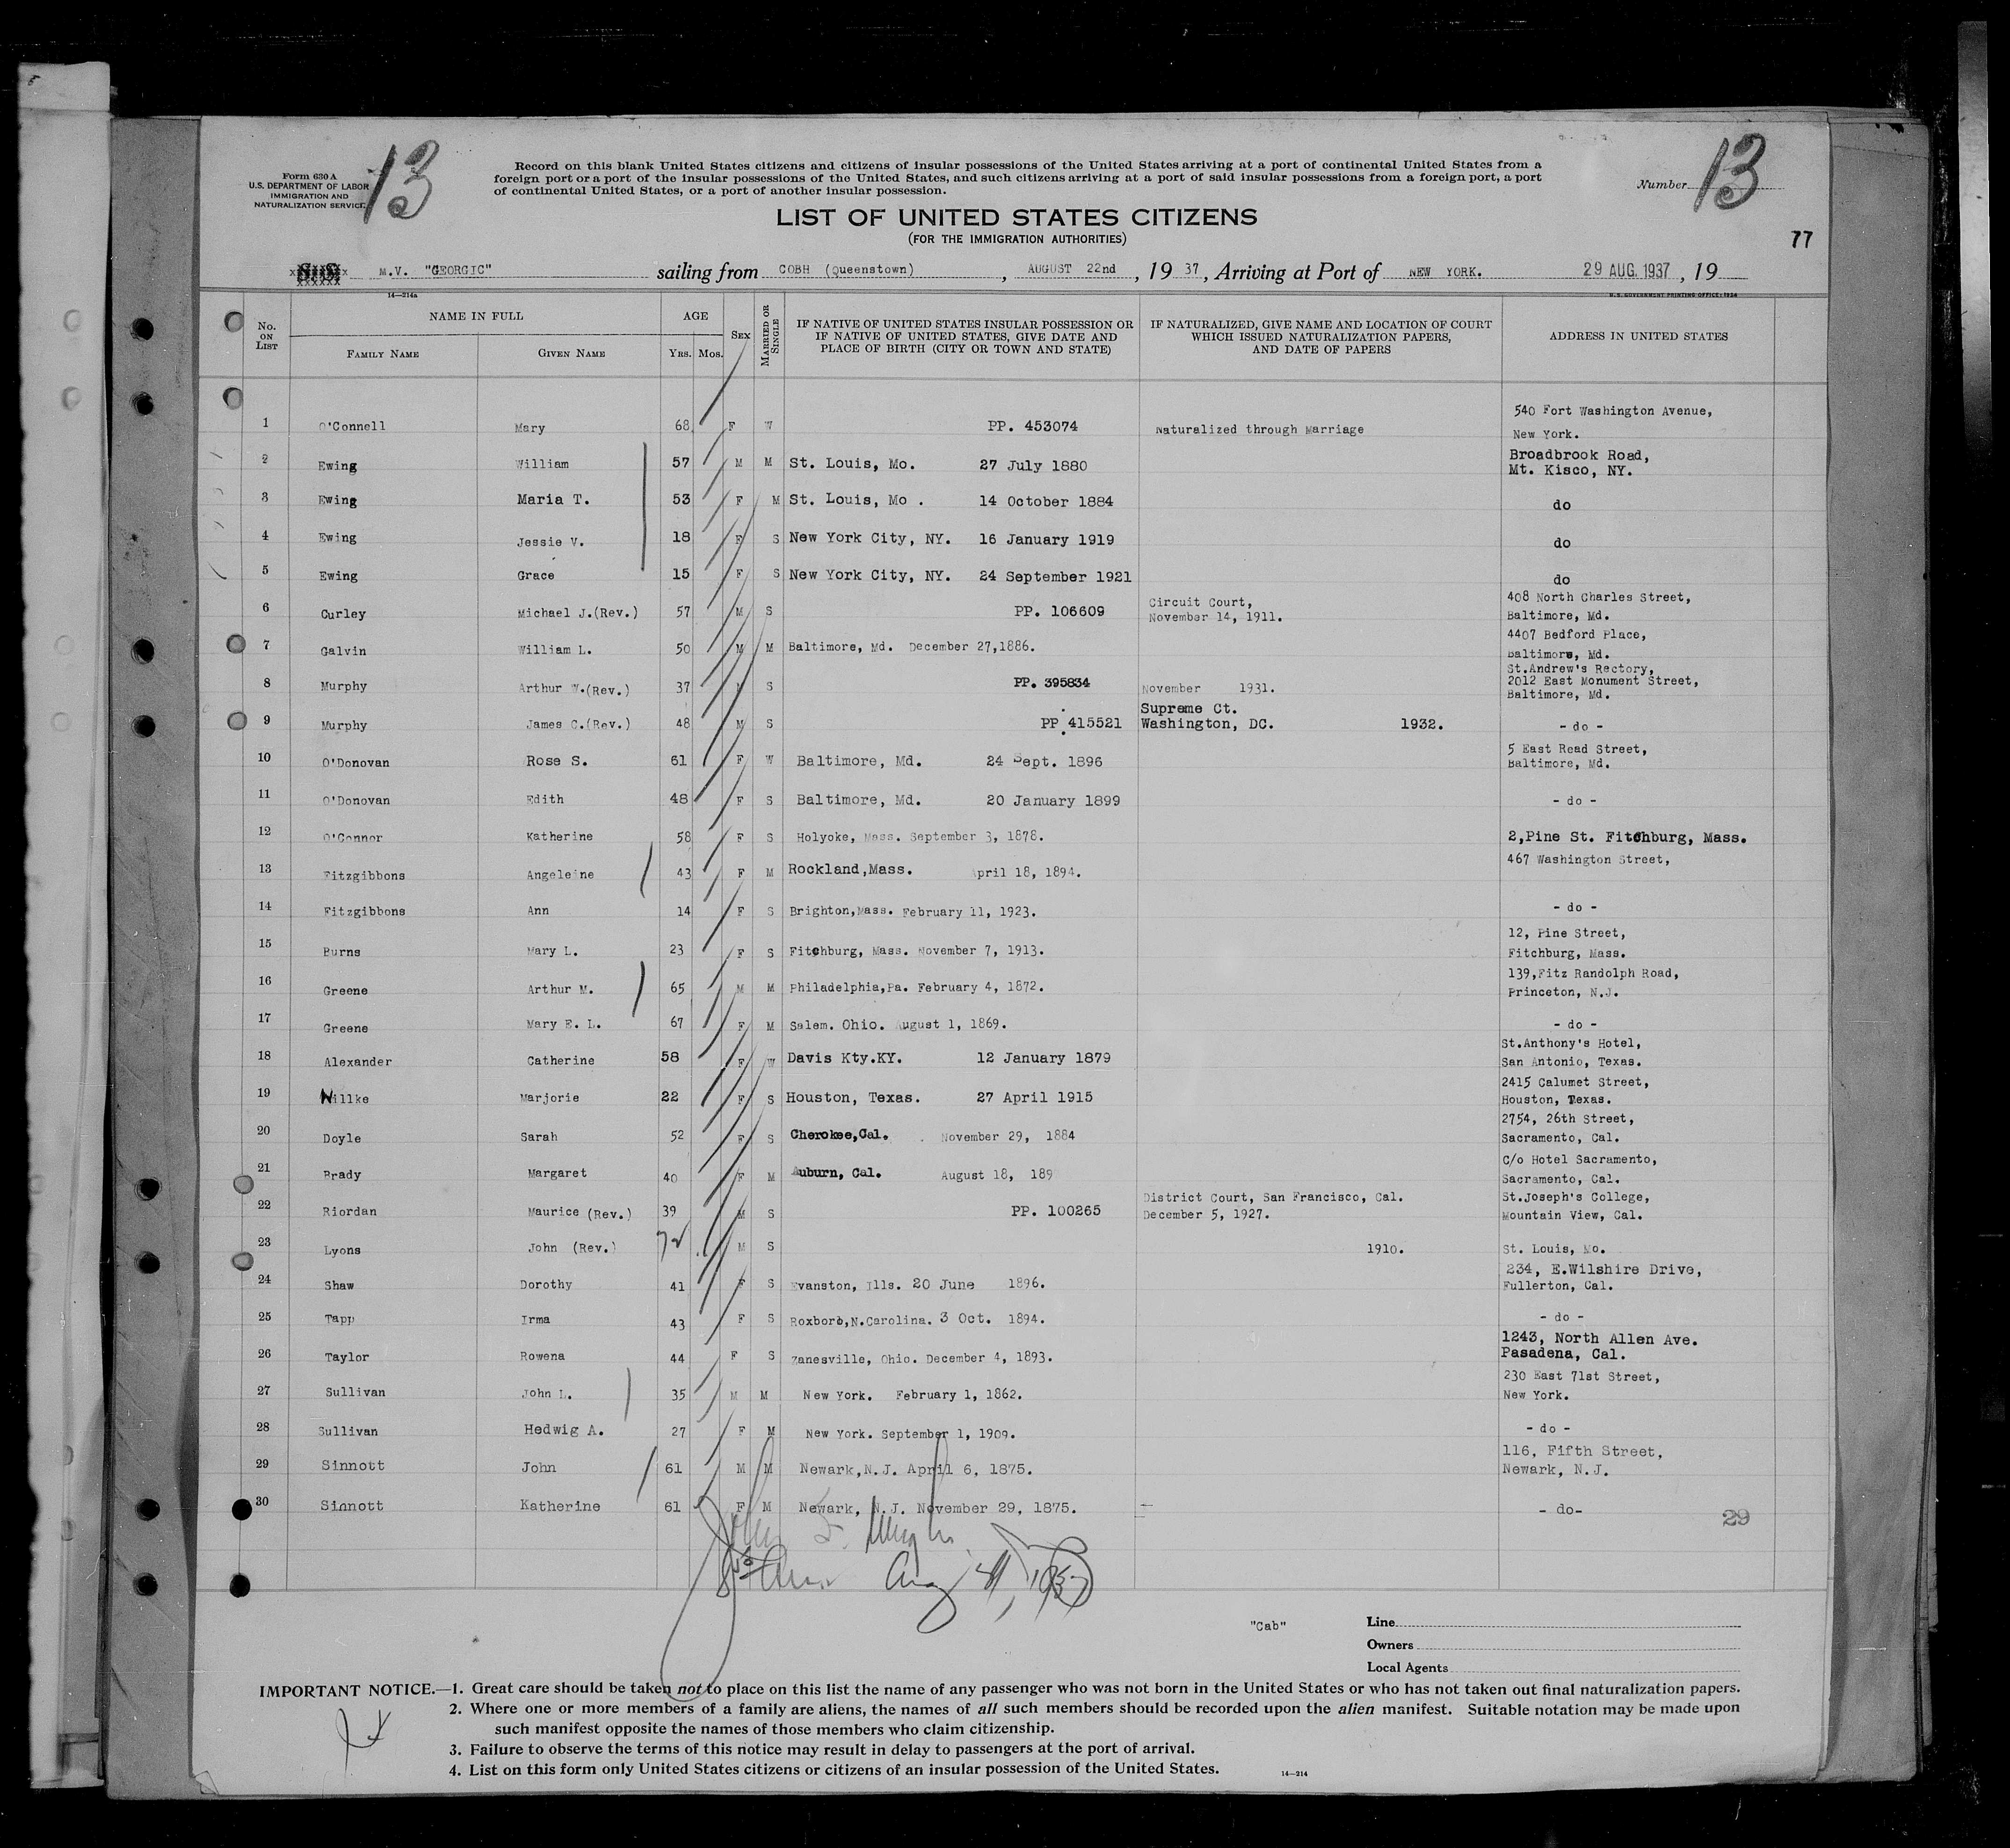 13
Form 630 A
U.S. DEPARTMENT OF LABOR
IMMIGRATION AND
NATURALIZATION SERVICE
Record on this blank United States citizens and citizens of insular possessions of the United States arriving at a port of continental United States from a
foreign port or a port of the insular possessions of the United States, and such citizens arriving at a port of said insular possessions from a foreign port, a port
of continental United States, or a port of another insular possession.
Number 13
LIST OF UNITED STATES CITIZENS
(FOR THE IMMIGRATION AUTHORITIES)
77
M.V. "GEORGIC" sailing from COBH (Queenstown), AUGUST 22nd, 19 37, Arriving at Port of NEW YORK. 29 AUG. 1937, 19
14—214a
U.S. GOVERNMENT PRINTING OFFICE: 1934
No. ON LIST
NAME IN FULL
FAMILY NAME GIVEN NAME
AGE
YRS. MOS.
SEX
MARRIED OR SINGLE
IF NATIVE OF UNITED STATES INSULAR POSSESSION OR
IF NATIVE OF UNITED STATES, GIVE DATE AND
PLACE OF BIRTH (CITY OR TOWN AND STATE)
IF NATURALIZED, GIVE NAME AND LOCATION OF COURT
WHICH ISSUED NATURALIZATION PAPERS,
AND DATE OF PAPERS
ADDRESS IN UNITED STATES
1 O'Connell Mary 68 F W PP. 453074 Naturalized through Marriage 540 Fort Washington Avenue,
New York.
2 Ewing William 57 M M St. Louis, Mo. 27 July 1880 Broadbrook Road,
Mt. Kisco, NY.
3 Ewing Maria T. 53 F M St. Louis, Mo . 14 October 1884 do
4 Ewing Jessie V. 18 F S New York City, NY. 16 January 1919 do
5 Ewing Grace 15 F S New York City, NY. 24 September 1921 do
6 Curley Michael J.(Rev.) 57 M S PP. 106609 Circuit Court,
November 14, 1911. 408 North Charles Street,
Baltimore, Md.
7 Galvin William L. 50 M M Baltimore, Md. December 27,1886. 4407 Bedford Place,
Baltimore, Md.
8 Murphy Arthur W.(Rev.) 37 M S PP. 395834 November 1931. St.Andrew's Rectory,
2012 East Monument Street,
Baltimore, Md.
9 Murphy James C.(Rev.) 48 M S PP. 415521 Supreme Ct.
Washington, DC. 1932. - do -
10 O'Donovan Rose S. 61 F W Baltimore, Md. 24 Sept. 1896 5 East Read Street,
Baltimore, Md.
11 O'Donovan Edith 48 F S Baltimore, Md. 20 January 1899 - do -
12 O'Connor Katherine 58 F S Holyoke, Mass. September 3, 1878. 2,Pine St. Fitchburg, Mass.
13 Fitzgibbons Angeleine 43 F M Rockland,Mass. April 18, 1894. 467 Washington Street,
14 Fitzgibbons Ann 14 F S Brighton,Mass. February 11, 1923. - do -
15 Burns Mary L. 23 F S Fitchburg, Mass. November 7, 1913. 12, Pine Street,
Fitchburg, Mass.
16 Greene Arthur M. 65 M M Philadelphia,Pa. February 4, 1872. 139,Fitz Randolph Road,
Princeton, N.J.
17 Greene Mary E. L. 67 F M Salem. Ohio. August 1, 1869. - do -
18 Alexander Catherine 58 F W Davis Kty.KY. 12 January 1879 St.Anthony's Hotel,
San Antonio, Texas.
19 Willke Marjorie 22 F S Houston, Texas. 27 April 1915 2415 Calumet Street,
Houston, Texas.
20 Doyle Sarah 52 F S Cherokee,Cal. November 29, 1884 2754, 26th Street,
Sacramento, Cal.
21 Brady Margaret 40 F M Auburn, Cal. August 18, 189 C/o Hotel Sacramento,
Sacramento, Cal.
22 Riordan Maurice (Rev.) 39 M S PP. 100265 District Court, San Francisco, Cal.
December 5, 1927. St.Joseph's College,
Mountain View, Cal.
23 Lyons John (Rev.) 72 M S 1910. St. Louis, Mo.
24 Shaw Dorothy 41 F S Evanston, Ills. 20 June 1896. 234, E.Wilshire Drive,
Fullerton, Cal.
25 Tapp Irma 43 F S Roxboro,N.Carolina. 3 Oct. 1894. - do -
26 Taylor Rowena 44 F S Zanesville, Ohio. December 4, 1893. 1243, North Allen Ave.
Pasadena, Cal.
27 Sullivan John L. 35 M M New York. February 1, 1862. 230 East 71st Street,
New York.
28 Sullivan Hedwig A. 27 F M New York. September 1, 1909. - do -
29 Sinnott John 61 M M Newark,N.J. April 6, 1875. 116, Fifth Street,
Newark, N.J.
30 Sinnott Katherine 61 F M Newark, N.J. November 29, 1875. - do-
29
"Cab"
Line
Owners
Local Agents
IMPORTANT NOTICE.—1. Great care should be taken not to place on this list the name of any passenger who was not born in the United States or who has not taken out final naturalization papers.
2. Where one or more members of a family are aliens, the names of all such members should be recorded upon the alien manifest. Suitable notation may be made upon
such manifest opposite the names of those members who claim citizenship.
3. Failure to observe the terms of this notice may result in delay to passengers at the port of arrival.
4. List on this form only United States citizens or citizens of an insular possession of the United States.
14—214